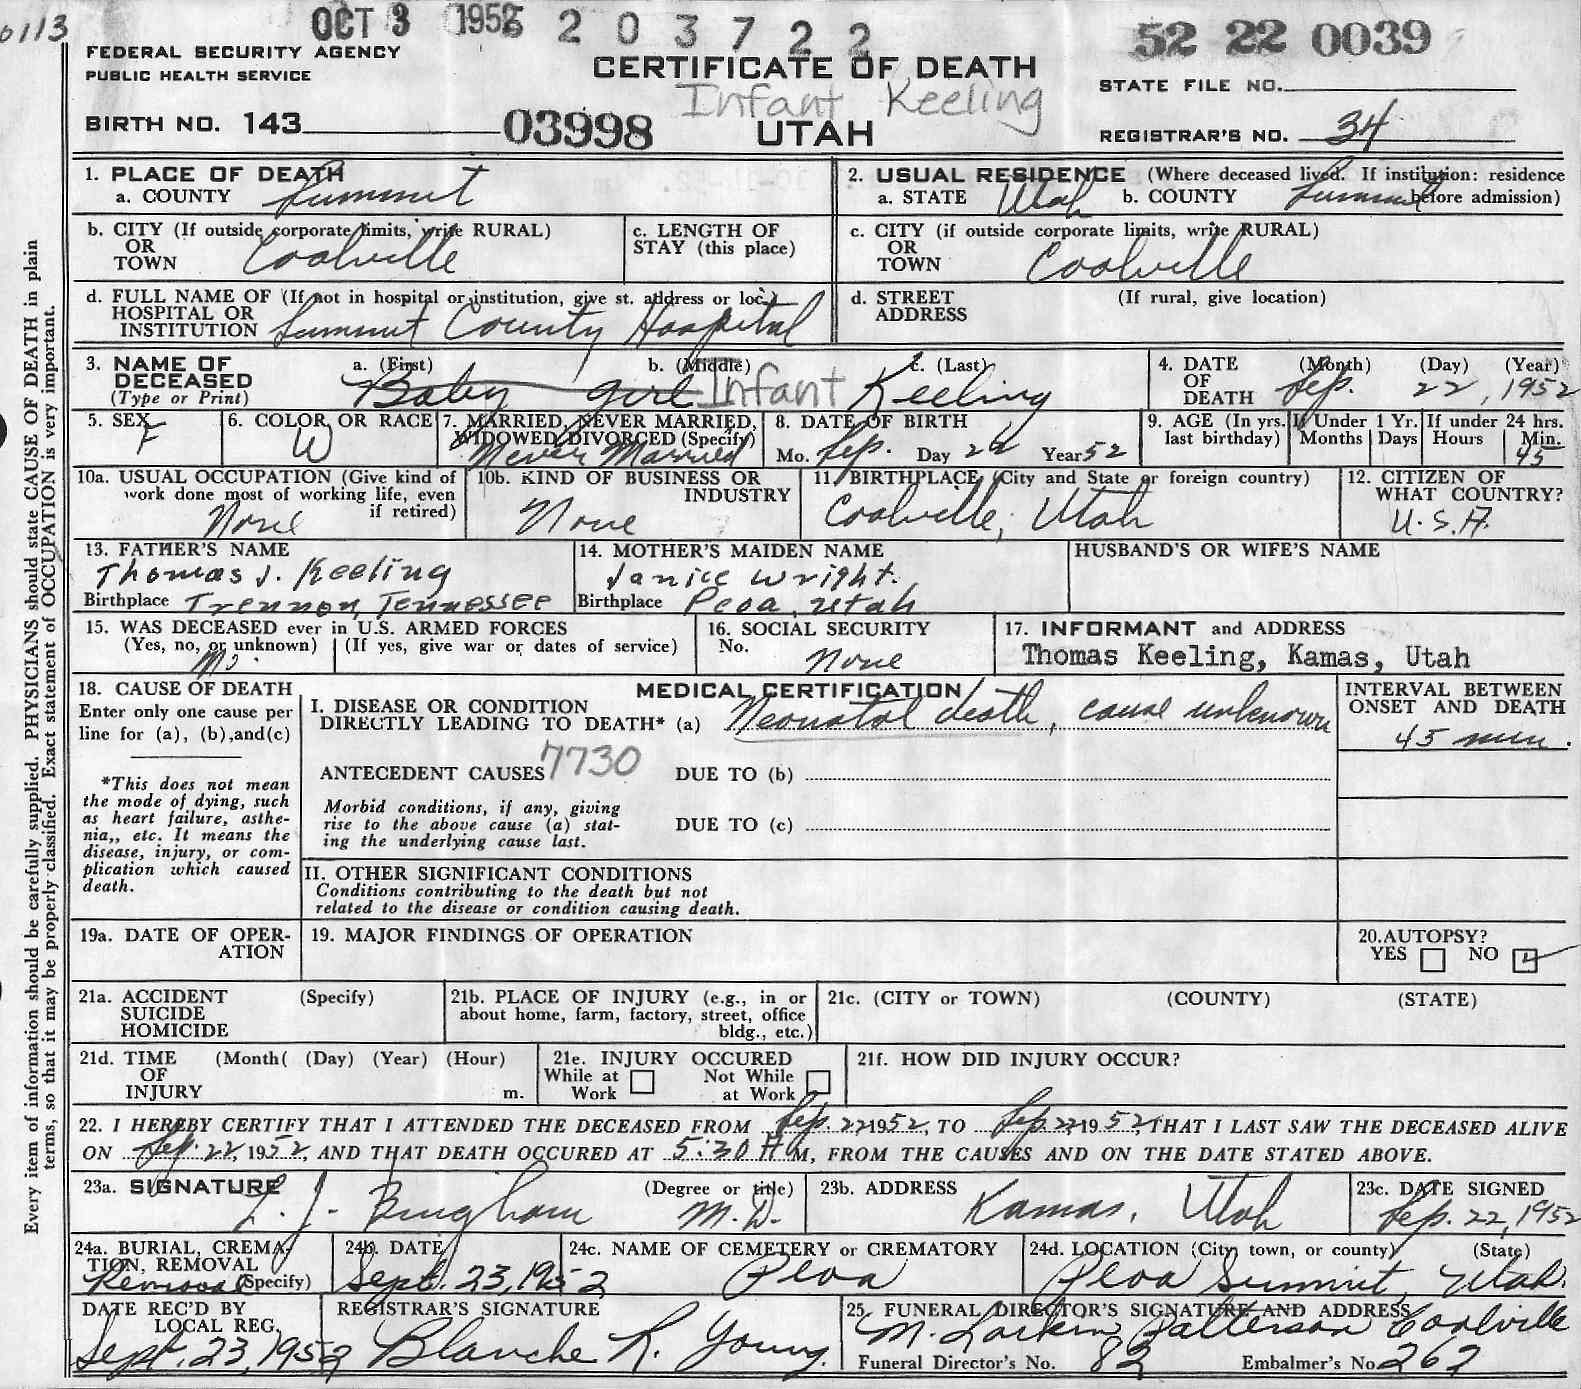 0113 OCT 3 1952 2 0 3 7 2 2 52 22 0039
FEDERAL SECURITY AGENCY
PUBLIC HEALTH SERVICE
CERTIFICATE OF DEATH
Infant Keeling
UTAH
STATE FILE NO.
BIRTH NO. 143 03998
REGISTRAR'S NO. 34
Every item of information should be carefully supplied. PHYSICIANS should state CAUSE OF DEATH in plain
terms, so that it may be properly classified. Exact statement of OCCUPATION is very important.
1. PLACE OF DEATH
a. COUNTY Summit
2. USUAL RESIDENCE (Where deceased lived. If institution: residence
a. STATE Utah b. COUNTY Summit before admission)
b. CITY (If outside corporate limits, write RURAL)
OR
TOWN Coalville
c. LENGTH OF
STAY (this place)
c. CITY (if outside corporate limits, write RURAL)
OR
TOWN Coalville
d. FULL NAME OF (If not in hospital or institution, give st. address or loc.)
HOSPITAL OR
INSTITUTION Summit County Hospital
d. STREET (If rural, give location)
ADDRESS
3. NAME OF a. (First) b. (Middle) c. (Last)
DECEASED
(Type or Print) Baby girl Infant Keeling
4. DATE (Month) (Day) (Year)
OF
DEATH Sep. 22, 1952
5. SEX
F
6. COLOR OR RACE
W
7. MARRIED, NEVER MARRIED,
WIDOWED, DIVORCED (Specify)
Never Married
8. DATE OF BIRTH
Mo. Sep. Day 22 Year 52
9. AGE (In yrs. If Under 1 Yr. If under 24 hrs.
last birthday) Months Days Hours Min.
45
10a. USUAL OCCUPATION (Give kind of
work done most of working life, even
if retired)
None
10b. KIND OF BUSINESS OR
INDUSTRY
None
11. BIRTHPLACE (City and State or foreign country)
Coalville, Utah
12. CITIZEN OF
WHAT COUNTRY?
U.S.A.
13. FATHER'S NAME
Thomas J. Keeling
Birthplace Trennon, Tennessee
14. MOTHER'S MAIDEN NAME
Janice Wright.
Birthplace Peoa, Utah
HUSBAND'S OR WIFE'S NAME
15. WAS DECEASED ever in U.S. ARMED FORCES
(Yes, no, or unknown) (If yes, give war or dates of service)
No.
16. SOCIAL SECURITY
No.
None
17. INFORMANT and ADDRESS
Thomas Keeling, Kamas, Utah
18. CAUSE OF DEATH
Enter only one cause per
line for (a), (b), and (c)
*This does not mean
the mode of dying, such
as heart failure, asthe-
nia,, etc. It means the
disease, injury, or com-
plication which caused
death.
MEDICAL CERTIFICATION
I. DISEASE OR CONDITION
DIRECTLY LEADING TO DEATH* (a) Neonatal death, cause unknown
ANTECEDENT CAUSES 7730 DUE TO (b)
Morbid conditions, if any, giving
rise to the above cause (a) stat-
ing the underlying cause last.
DUE TO (c)
II. OTHER SIGNIFICANT CONDITIONS
Conditions contributing to the death but not
related to the disease or condition causing death.
INTERVAL BETWEEN
ONSET AND DEATH
45 min.
19a. DATE OF OPER-
ATION
19. MAJOR FINDINGS OF OPERATION
20. AUTOPSY?
YES NO
21a. ACCIDENT (Specify)
SUICIDE
HOMICIDE
21b. PLACE OF INJURY (e.g., in or
about home, farm, factory, street, office
bldg., etc.)
21c. (CITY or TOWN) (COUNTY) (STATE)
21d. TIME (Month( (Day) (Year) (Hour)
OF
INJURY m.
21e. INJURY OCCURED
While at Not While
Work at Work
21f. HOW DID INJURY OCCUR?
22. I HEREBY CERTIFY THAT I ATTENDED THE DECEASED FROM Sep. 22 1952, TO Sep. 22 1952, THAT I LAST SAW THE DECEASED ALIVE
ON Sep. 22, 1952, AND THAT DEATH OCCURED AT 5:30 A M, FROM THE CAUSES AND ON THE DATE STATED ABOVE.
23a. SIGNATURE (Degree or title)
L. J. Bingham M.D.
23b. ADDRESS
Kamas, Utah
23c. DATE SIGNED
Sep. 22, 1952
24a. BURIAL, CREMA-
TION, REMOVAL
Removal (Specify)
24b. DATE
Sept. 23, 1952
24c. NAME OF CEMETERY or CREMATORY
Peoa
24d. LOCATION (City, town, or county) (State)
Peoa Summit, Utah.
DATE REC'D BY
LOCAL REG.
Sept. 23, 1952
REGISTRAR'S SIGNATURE
Blanche R. Young.
25. FUNERAL DIRECTOR'S SIGNATURE AND ADDRESS
M. Larkin Patterson Coalville
Funeral Director's No. 82 Embalmer's No. 262